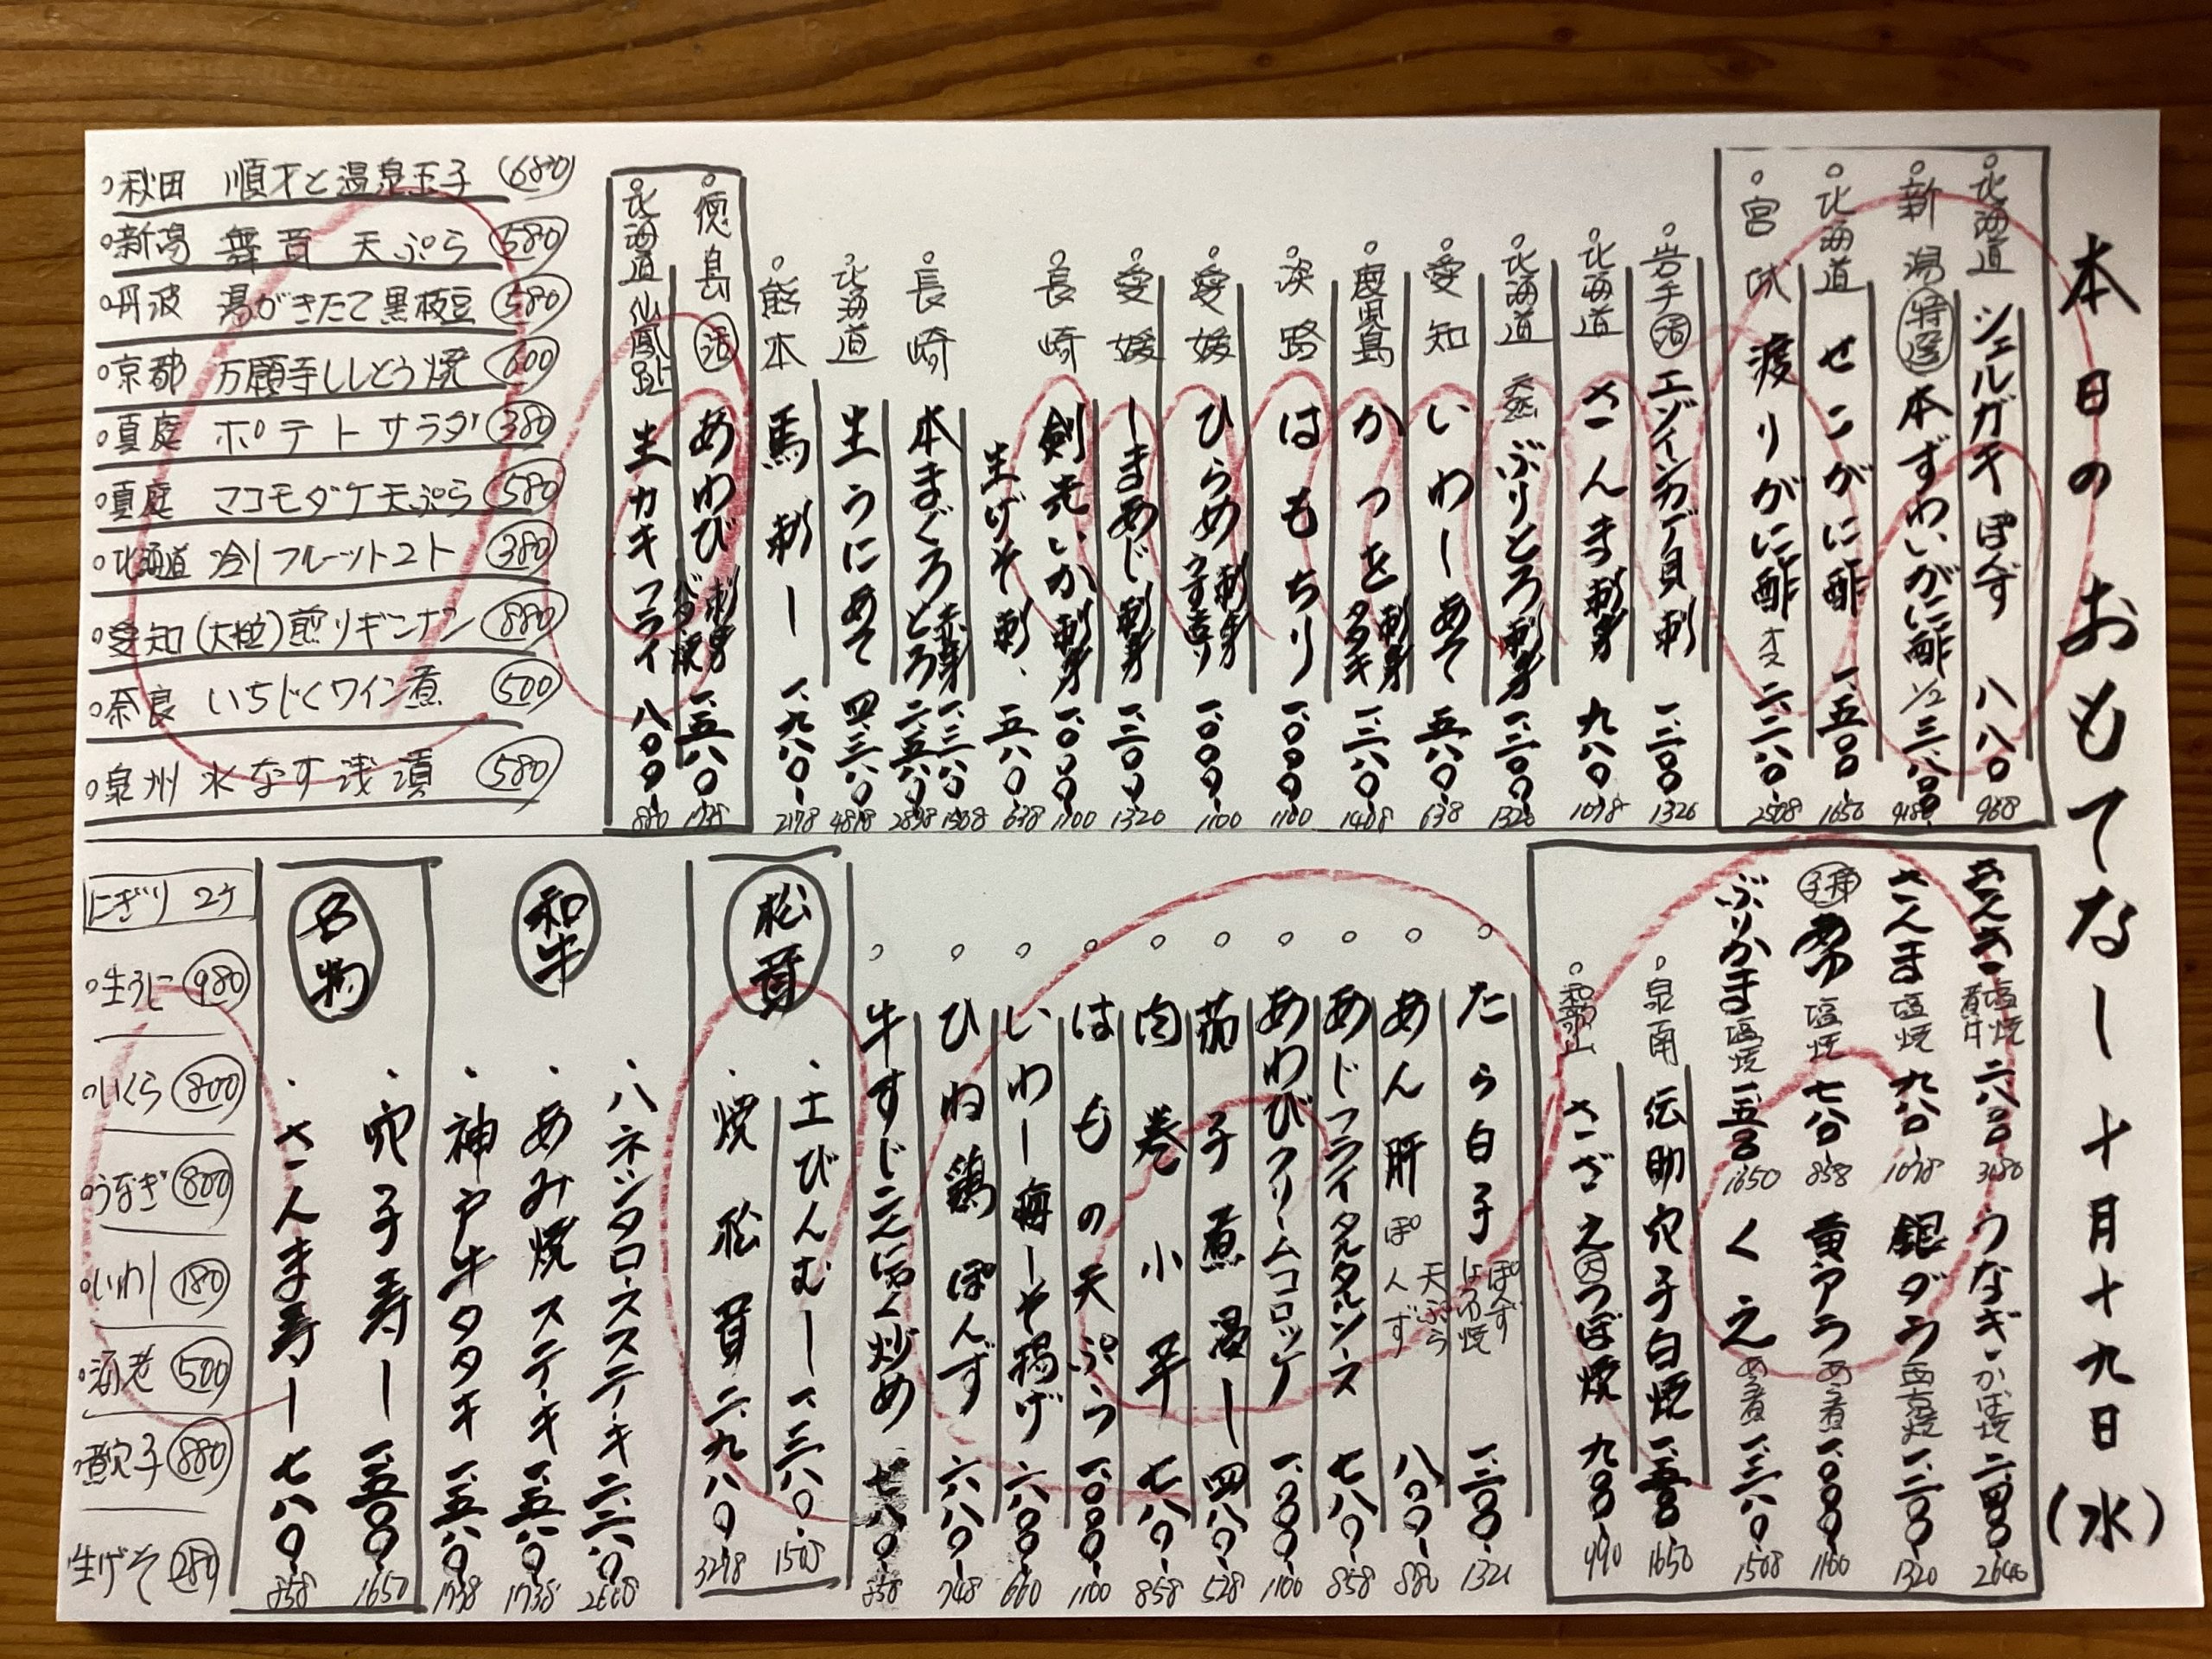 本日のおもてなし 十月十九日(水)
北海道 シェルガキ ぽんず 八八〇 968
新潟 特選 本ずわいがに酢 1/2 三、八〇〇 4180
北海道 せこがに酢 一、五〇〇 1650
宮城 渡りがに酢 オス 二、二八〇 2508
岩手 活 エゾイシカゲ貝 刺 一、二〇〇 1320
北海道 さんま 刺身 九八〇 1078
北海道 天然 ぶりとろ 刺身 一、二〇〇 1320
愛知 いわしあて 五八〇 638
鹿児島 かつを 刺身 タタキ 一、二八〇 1408
淡路 はもちり 一、〇〇〇 1100
愛媛 ひらめ 刺身 うす造り 一、〇〇〇 1100
愛媛 しまあじ 刺身 一、二〇〇 1320
長崎 剣先いか 刺身 一、〇〇〇 1100
生げそ 刺 五八〇 638
長崎 本まぐろ 赤身 一、三八〇 1508
とろ 二、五八〇 2838
北海道 生うにあて 四、三八〇 4818
熊本 馬刺し 一、九八〇 2178
徳島 活 あわび 刺身 バター焼 一、五八〇 1738
北海道 仙鳳趾 生カキフライ 八〇〇 880
秋田 順才と温泉玉子 680
新潟 舞茸 天ぷら 580
丹波 湯がきたて黒枝豆 580
京都 万願寺ししとう焼 600
真庭 ポテトサラダ 380
真庭 マコモダケ天ぷら 580
北海道 冷しフルーツトマト 380
愛知 (大粒) 煎りギンナン 880
奈良 いちじくワイン煮 500
泉州 水なす浅漬 580
塩焼 煮付 二、八〇〇 3080
うなぎ かば焼 二、四〇〇 2640
さんま 塩焼 九八〇 1078
銀ダラ 西京焼 一、二〇〇 1320
子持 あゆ 塩焼 七八〇 858
黄アラ あら煮 一、〇〇〇 1100
ぶりかま 塩焼 一、五〇〇 1650
くえ あら煮 一、三八〇 1508
泉南 伝助穴子白焼 一、五〇〇 1650
和歌山 さざえ つぼ焼 九〇〇 990
たら白子 ぽんず 一、二〇〇 132
あん肝 ぽんず 天ぷら 八〇〇 880
あじフライ タルタルソース 七八〇 858
あわびクリームコロッケ 一、〇〇〇 1100
茄子煮浸し 四八〇 528
肉巻小芋 七八〇 858
はもの天ぷら 一、〇〇〇 1100
いわし梅しそ揚げ 六〇〇 660
ひね鶏ぽんず 六八〇 748
牛すじニンニク炒め 七八〇 858
松茸
土びんむし 一、三八〇 1508
焼松茸 二、九八〇 3278
和牛
ハネシタロースステーキ 二、三八〇
あみ焼ステーキ 一、五八〇 1738
神戸牛タタキ 一、五八〇 1738
名物
穴子寿し 一、五〇〇 1650
さんま寿し 七八〇 858
にぎり 2ケ
生うに 980
いくら 800
うなぎ 800
いわし 180
海老 500
煮穴子 880
生げそ 280